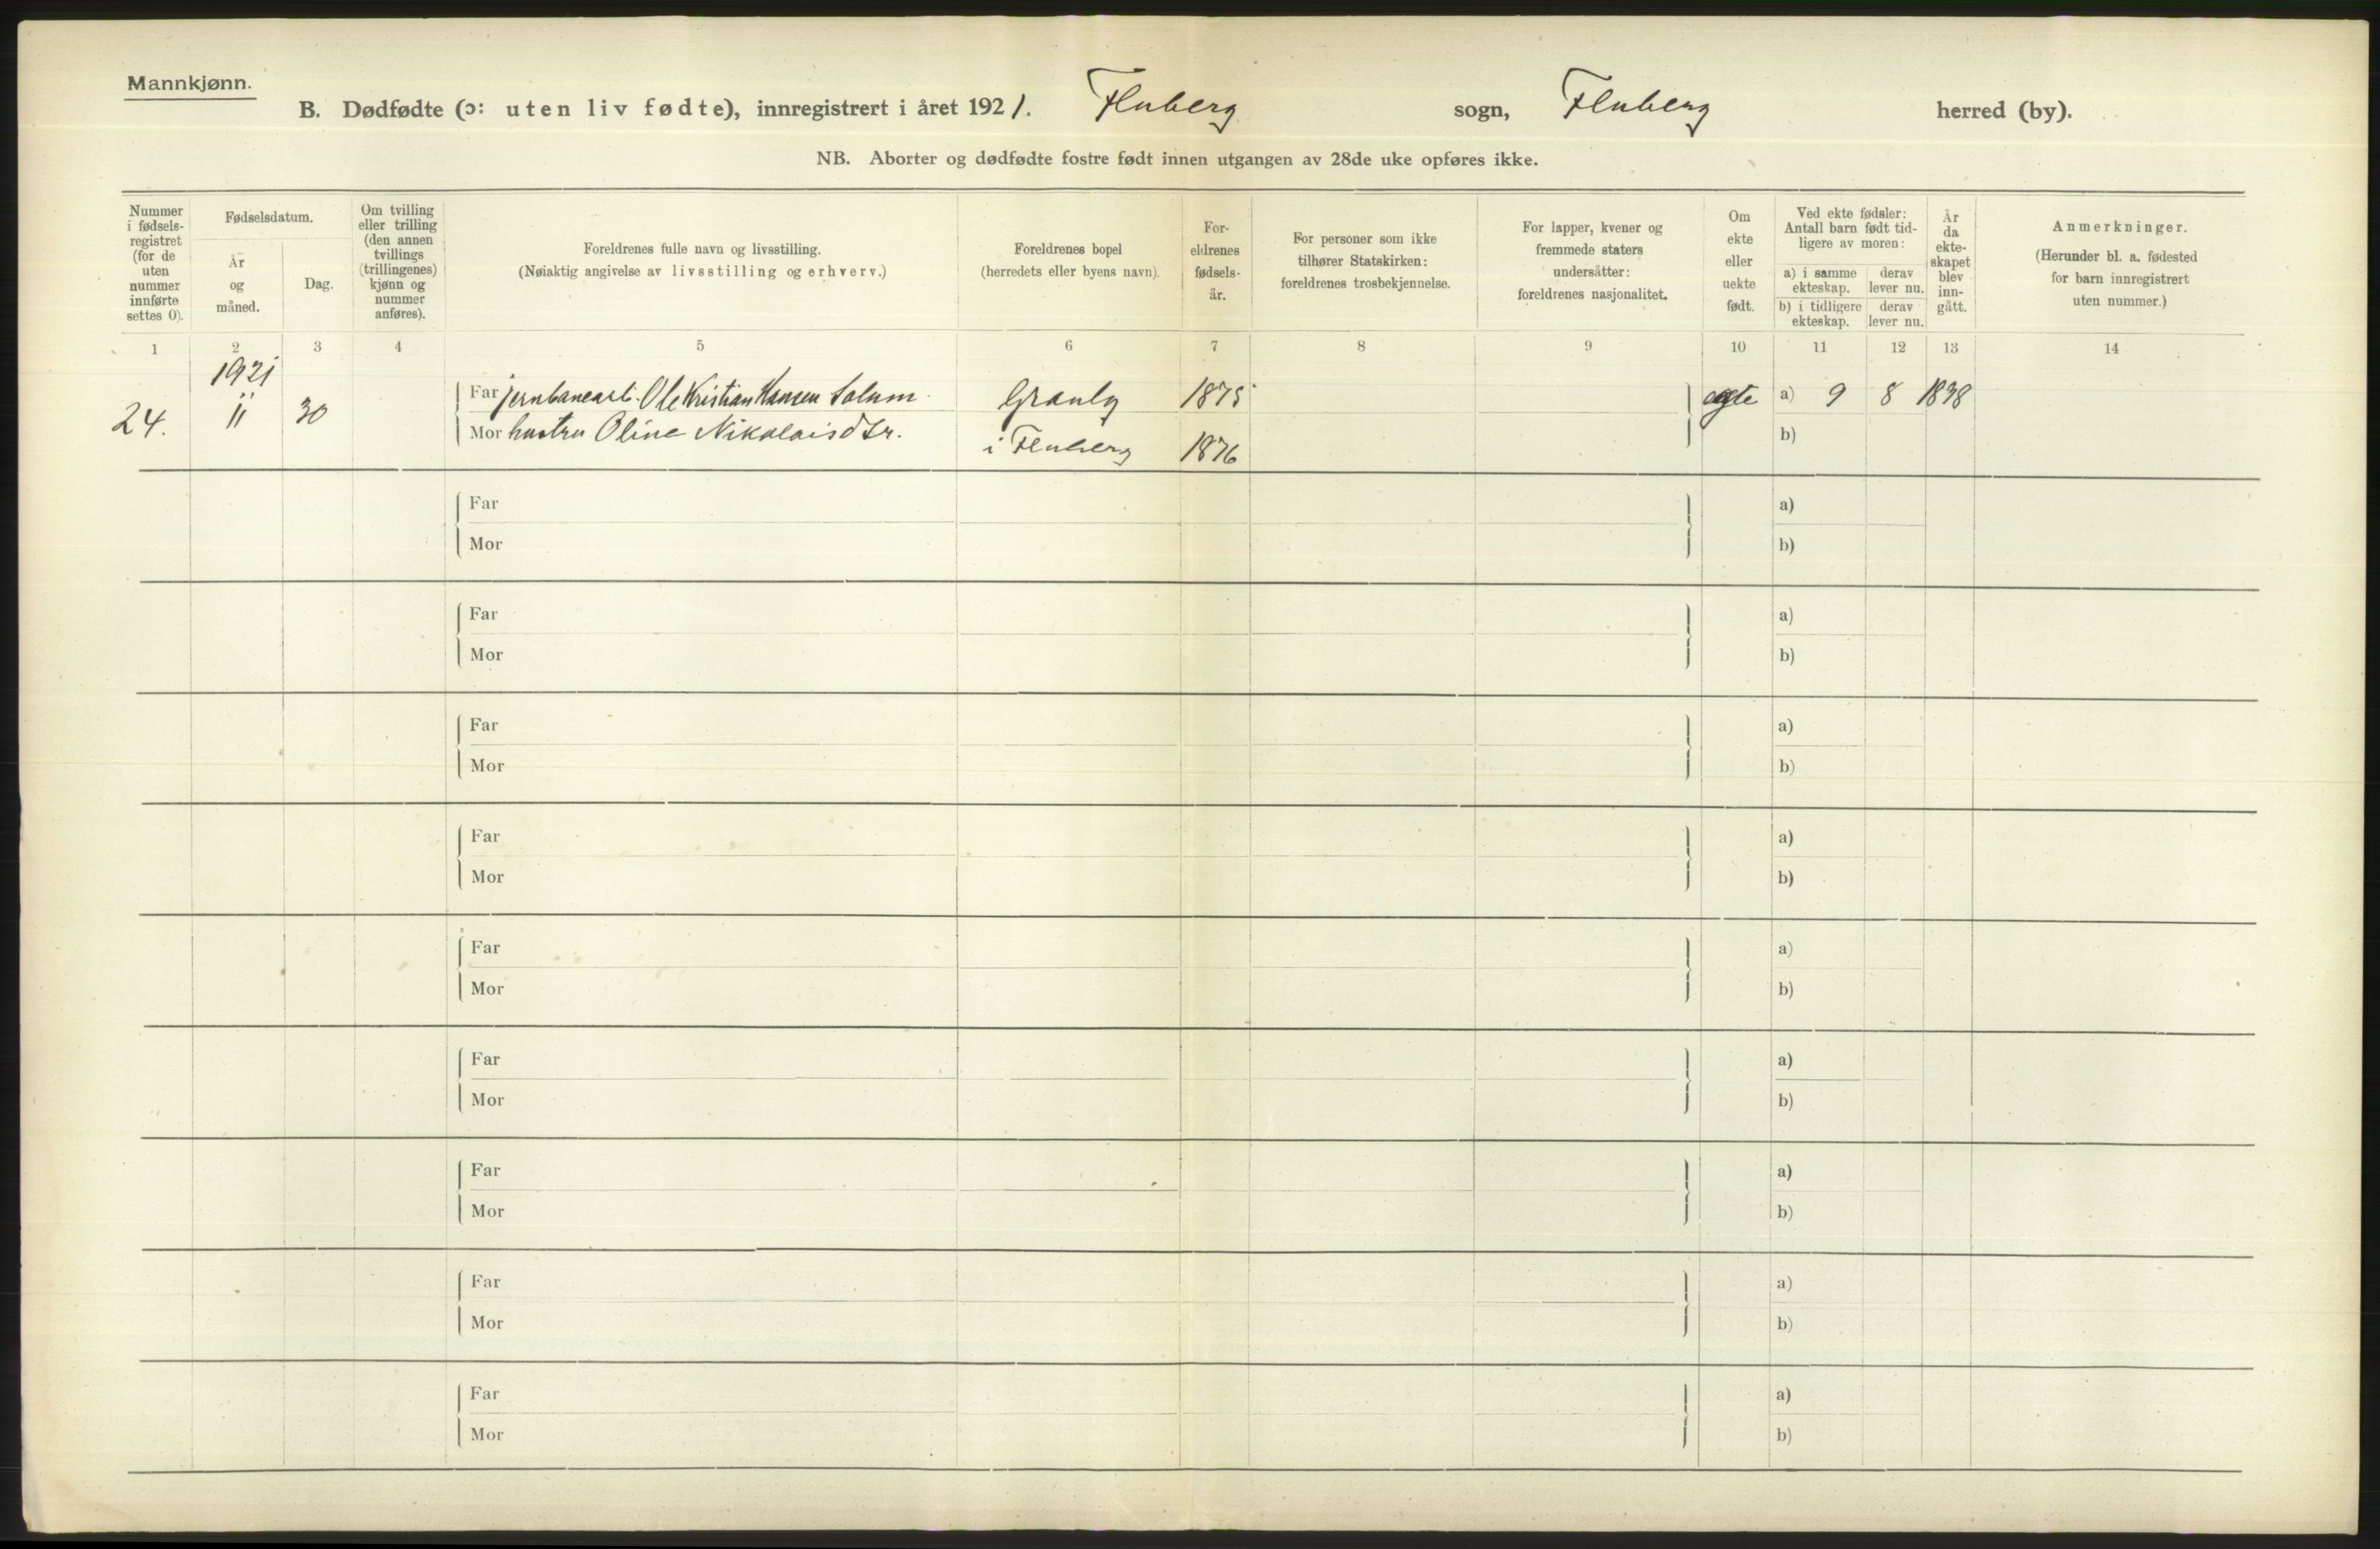 Mannkjønn.
B. Dødfødte (ɔ: uten liv fødte), innregistrert i året 1921. Fluberg sogn, Fluberg herred (by).
NB. Aborter og dødfødte fostre født innen utgangen av 28de uke opføres ikke.
Nummer i fødsels-registret (for de uten nummer innførte settes 0).
Fødselsdatum.
År og måned.
Dag.
Om tvilling eller trilling (den annen tvillings (trillingenes) kjønn og nummer anføres).
Foreldrenes fulle navn og livsstilling.
(Nøiaktig angivelse av livsstilling og erhverv.)
Foreldrenes bopel
(herredets eller byens navn).
For-eldrenes fødsels-år.
For personer som ikke tilhører Statskirken: foreldrenes trosbekjennelse.
For lapper, kvener og fremmede staters undersåtter: foreldrenes nasjonalitet.
Om ekte eller uekte født.
Ved ekte fødsler: Antall barn født tid-ligere av moren:
a) i samme ekteskap.
derav lever nu.
b) i tidligere ekteskap.
derav lever nu.
År da ekte-skapet blev inn-gått.
Anmerkninger.
(Herunder bl. a. fødested for barn innregistrert uten nummer.)
1 2 3 4 5 6 7 8 9 10 11 12 13 14
1921
Far jernbanearb. Ole Kristian Hansen Solum Granly 1875 egte a) 9 8 1898
24. 11 30
Mor hustru Oline Nikolaisdtr. i Fluberg 1876 b)
Far a)
Mor b)
Far a)
Mor b)
Far a)
Mor b)
Far a)
Mor b)
Far a)
Mor b)
Far a)
Mor b)
Far a)
Mor b)
Far a)
Mor b)
Far a)
Mor b)